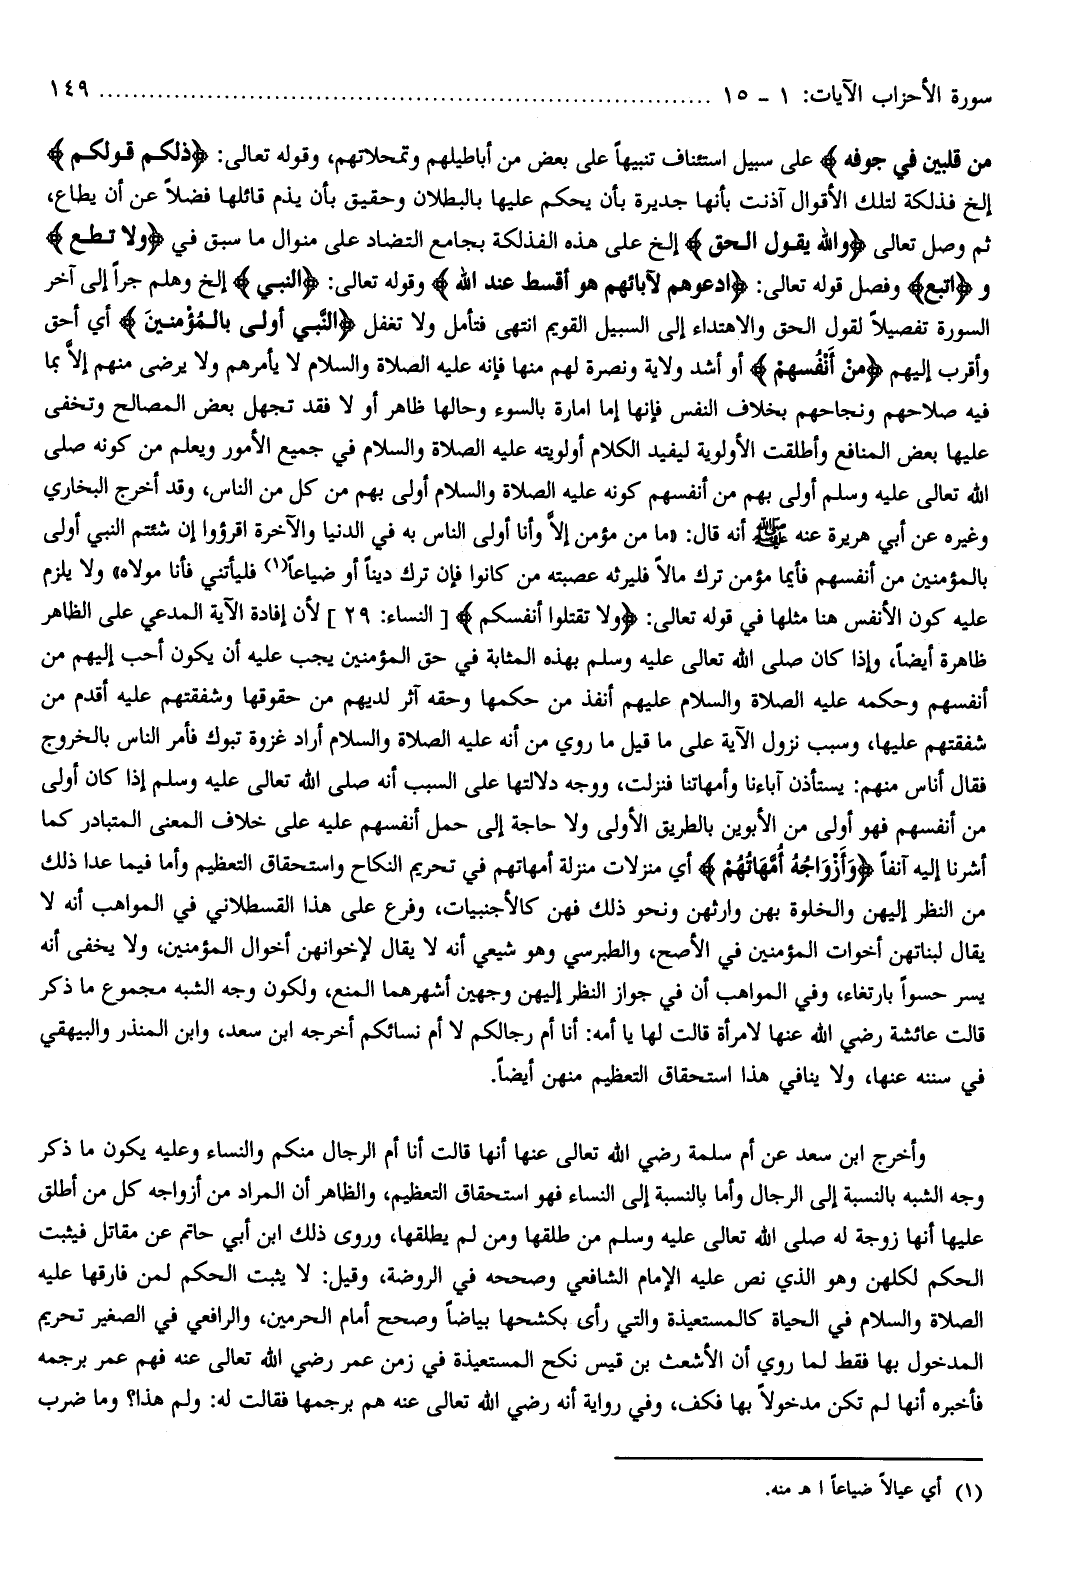 سورة الأحزاب الآيات: ١ - ١٥ ........................................................................ ١٤٩
من قلبين في جوفه﴾ على سبيل استئناف تنبيهاً على بعض من أباطيلهم وتمحلاتهم، وقوله تعالى: ﴿ذلكم قولكم﴾
إلخ فذلكة لتلك الأقوال آذنت بأنها جديرة بأن يحكم عليها بالبطلان وحقيق بأن يذم قائلها فضلاً عن أن يطاع،
ثم وصل تعالى ﴿والله يقول الحق﴾ إلخ على هذه الفذلكة بجامع التضاد على منوال ما سبق في ﴿ولا تطع﴾
و ﴿اتبع﴾ وفصل قوله تعالى: ﴿ادعوهم لآبائهم هو أقسط عند الله﴾ وقوله تعالى: ﴿النبي﴾ إلخ وهلم جراً إلى آخر
السورة تفصيلاً لقول الحق والاهتداء إلى السبيل القويم انتهى فتأمل ولا تغفل ﴿النَّبي أولى بالمُؤْمنينَ﴾ أي أحق
وأقرب إليهم ﴿منْ أَنْفُسهمْ﴾ أو أشد ولاية ونصرة لهم منها فإنه عليه الصلاة والسلام لا يأمرهم ولا يرضى منهم إلاَّ بما
فيه صلاحهم ونجاحهم بخلاف النفس فإنها إما امارة بالسوء وحالها ظاهر أو لا فقد تجهل بعض المصالح وتخفى
عليها بعض المنافع وأطلقت الأولوية ليفيد الكلام أولويته عليه الصلاة والسلام في جميع الأمور ويعلم من كونه صلى
الله تعالى عليه وسلم أولى بهم من أنفسهم كونه عليه الصلاة والسلام أولى بهم من كل من الناس، وقد أخرج البخاري
وغيره عن أبي هريرة عنه ﷺ أنه قال: «ما من مؤمن إلاَّ وأنا أولى الناس به في الدنيا والآخرة اقرؤوا إن شئتم النبي أولى
بالمؤمنين من أنفسهم فأيما مؤمن ترك مالاً فليرثه عصبته من كانوا فإن ترك ديناً أو ضياعاً(١) فليأتني فأنا مولاه» ولا يلزم
عليه كون الأنفس هنا مثلها في قوله تعالى: ﴿ولا تقتلوا أنفسكم﴾ [ النساء: ٢٩ ] لأن إفادة الآية المدعي على الظاهر
ظاهرة أيضاً، وإذا كان صلى الله تعالى عليه وسلم بهذه المثابة في حق المؤمنين يجب عليه أن يكون أحب إليهم من
أنفسهم وحكمه عليه الصلاة والسلام عليهم أنفذ من حكمها وحقه آثر لديهم من حقوقها وشفقتهم عليه أقدم من
شفقتهم عليها، وسبب نزول الآية على ما قيل ما روي من أنه عليه الصلاة والسلام أراد غزوة تبوك فأمر الناس بالخروج
فقال أناس منهم: يستأذن آباءنا وأمهاتنا فنزلت، ووجه دلالتها على السبب أنه صلى الله تعالى عليه وسلم إذا كان أولى
من أنفسهم فهو أولى من الأبوين بالطريق الأولى ولا حاجة إلى حمل أنفسهم عليه على خلاف المعنى المتبادر كما
أشرنا إليه آنفاً ﴿وَأَزْوَاجُهُ أُمَّهَاتُهُمْ﴾ أي منزلات منزلة أمهاتهم في تحريم النكاح واستحقاق التعظيم وأما فيما عدا ذلك
من النظر إليهن والخلوة بهن وارثهن ونحو ذلك فهن كالأجنبيات، وفرع على هذا القسطلاني في المواهب أنه لا
يقال لبناتهن أخوات المؤمنين في الأصح، والطبرسي وهو شيعي أنه لا يقال لإخوانهن أخوال المؤمنين، ولا يخفى أنه
يسر حسواً بارتغاء، وفي المواهب أن في جواز النظر إليهن وجهين أشهرهما المنع، ولكون وجه الشبه مجموع ما ذكر
قالت عائشة رضي الله عنها لامرأة قالت لها يا أمه: أنا أم رجالكم لا أم نسائكم أخرجه ابن سعد، وابن المنذر والبيهقي
في سننه عنها، ولا ينافي هذا استحقاق التعظيم منهن أيضاً.
وأخرج ابن سعد عن أم سلمة رضي الله تعالى عنها أنها قالت أنا أم الرجال منكم والنساء وعليه يكون ما ذكر
وجه الشبه بالنسبة إلى الرجال وأما بالنسبة إلى النساء فهو استحقاق التعظيم، والظاهر أن المراد من أزواجه كل من أطلق
عليها أنها زوجة له صلى الله تعالى عليه وسلم من طلقها ومن لم يطلقها، وروى ذلك ابن أبي حاتم عن مقاتل فيثبت
الحكم لكلهن وهو الذي نص عليه الإمام الشافعي وصححه في الروضة، وقيل: لا يثبت الحكم لمن فارقها عليه
الصلاة والسلام في الحياة كالمستعيذة والتي رأى بكشحها بياضاً وصحح أمام الحرمين، والرافعي في الصغير تحريم
المدخول بها فقط لما روي أن الأشعث بن قيس نكح المستعيذة في زمن عمر رضي الله تعالى عنه فهم عمر برجمه
فأخبره أنها لم تكن مدخولاً بها فكف، وفي رواية أنه رضي الله تعالى عنه هم برجمها فقالت له: ولم هذا؟ وما ضرب
(١) أي عيالاً ضياعاً ا هـ منه.